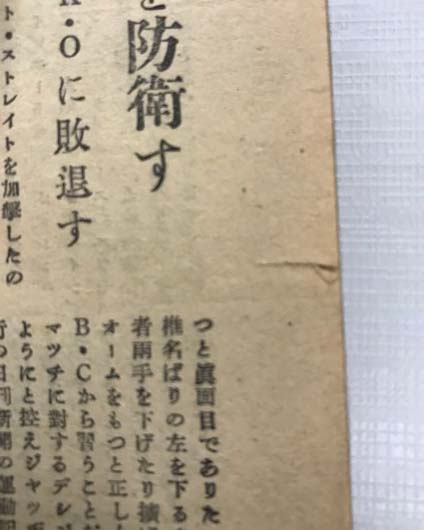 防衛す
・Oに敗退す
ト・ストレイトを加撃したの
つと眞面目でありた
椎名ばりの左を下る
者兩手を下げたり
オームをもつと正し
B・Cから習うことだ
マッチに対するデレ
ようにと控えジャッ
行の日刊新聞の運動